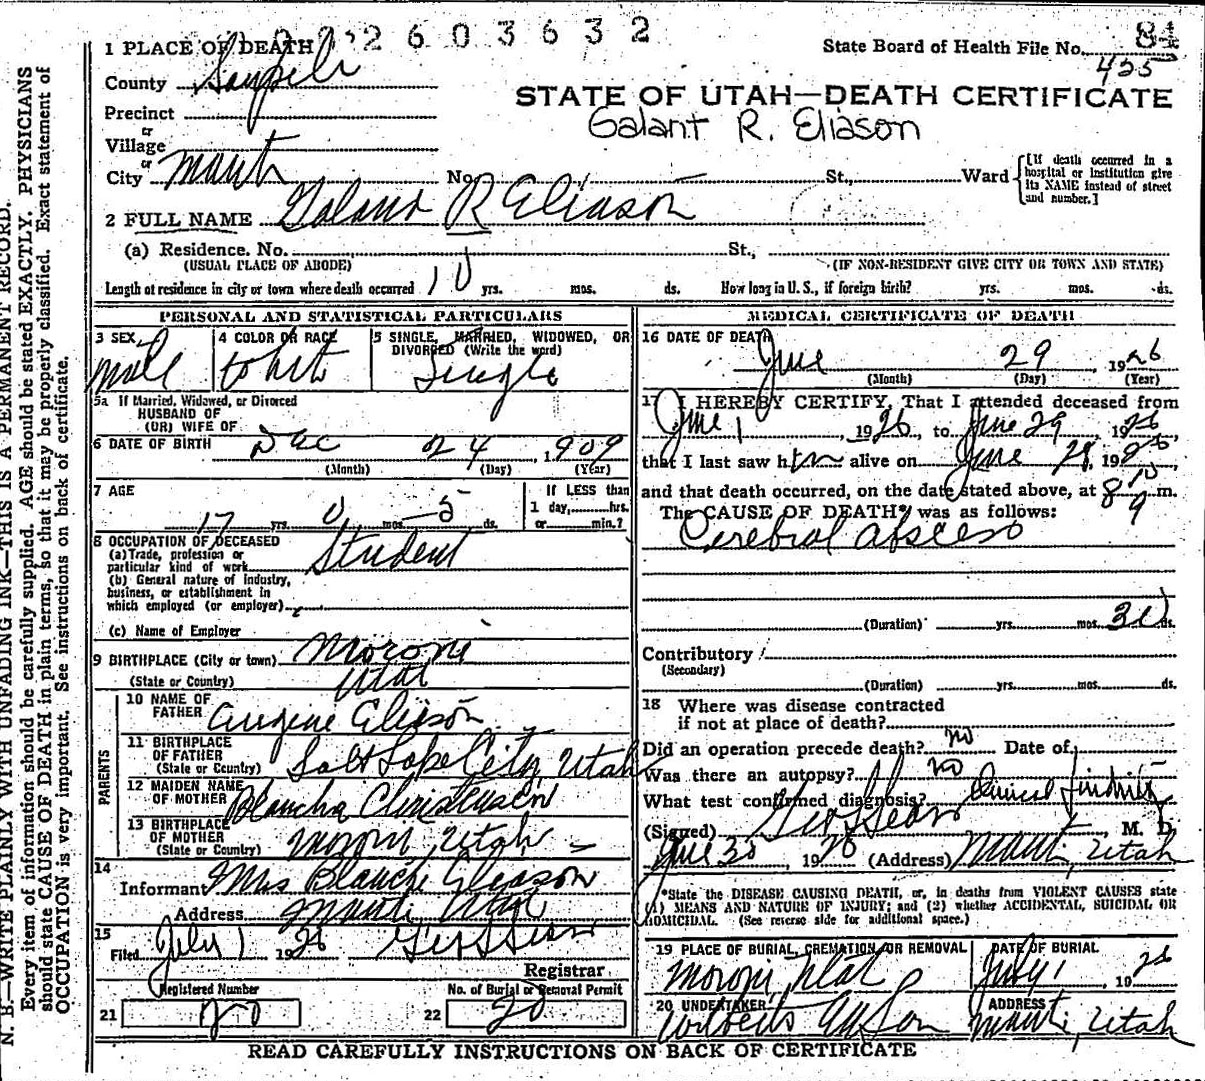 2603632
1 PLACE OF DEATH
State Board of Health File No. 84
425
County Sanpete
STATE OF UTAH—DEATH CERTIFICATE
Precinct
Galant R. Eliason
or
Village
or
City Manti No. St., Ward
[If death occurred in a
hospital or institution give
its NAME instead of street
and number.]
2 FULL NAME R Eliason
(a) Residence. No. St.,
(USUAL PLACE OF ABODE) (IF NON-RESIDENT GIVE CITY OR TOWN AND STATE)
Length of residence in city or town where death occurred 10 yrs. mos. ds. How long in U. S., if foreign birth? yrs. mos. ds.
PERSONAL AND STATISTICAL PARTICULARS
3 SEX 4 COLOR OR RACE 5 SINGLE, MARRIED, WIDOWED, OR
DIVORCED (Write the word)
Male White Single
5a If Married, Widowed, or Divorced
HUSBAND OF
(OR) WIFE OF
6 DATE OF BIRTH Dec 24 1909
(Month) (Day) (Year)
7 AGE If LESS than
1 day, hrs.
17 yrs. 0 mos. 5 ds. or min.?
8 OCCUPATION OF DECEASED
(a) Trade, profession or
particular kind of work Student
(b) General nature of industry,
business, or establishment in
which employed (or employer)
(c) Name of Employer
9 BIRTHPLACE (City or town) Moroni
(State or Country) Utah
PARENTS
10 NAME OF
FATHER Eugene Eliason
11 BIRTHPLACE
OF FATHER
(State or Country) Salt Lake City, Utah
12 MAIDEN NAME
OF MOTHER Blancha Christensen
13 BIRTHPLACE
OF MOTHER
(State or Country) Moroni, Utah
14
Informant Mrs Blanche Eleason
Address Manti Utah
15
Filed July 1 1926
Registrar
Registered Number No. of Burial or Removal Permit
21 20 22 20
MEDICAL CERTIFICATE OF DEATH
16 DATE OF DEATH
June 29, 1926
(Month) (Day) (Year)
17 I HEREBY CERTIFY, That I attended deceased from
June 1, 1926, to June 29, 1926,
that I last saw him alive on June 29, 1926,
and that death occurred, on the date stated above, at 8 m.
The CAUSE OF DEATH* was as follows:
Cerebral abscess
(Duration) yrs. mos. 30 ds.
Contributory
(Secondary)
(Duration) yrs. mos. ds.
18 Where was disease contracted
if not at place of death?
Did an operation precede death? no Date of
Was there an autopsy? no
What test confirmed diagnosis? Clinical findings
(Signed), M. D.
June 30, 1926 (Address) Manti, Utah
*State the DISEASE CAUSING DEATH, or, in deaths from VIOLENT CAUSES state
(1) MEANS AND NATURE OF INJURY; and (2) whether ACCIDENTAL, SUICIDAL OR
HOMICIDAL. (See reverse side for additional space.)
19 PLACE OF BURIAL, CREMATION, OR REMOVAL DATE OF BURIAL
Moroni, Utah July 1, 1926
20 UNDERTAKER ADDRESS
Manti, Utah
READ CAREFULLY INSTRUCTIONS ON BACK OF CERTIFICATE
N. B.—WRITE PLAINLY WITH UNFADING INK—THIS IS A PERMANENT RECORD.
Every item of information should be carefully supplied. AGE should be stated EXACTLY. PHYSICIANS
should state CAUSE OF DEATH in plain terms, so that it may be properly classified. Exact statement of
OCCUPATION is very important. See instructions on back of certificate.